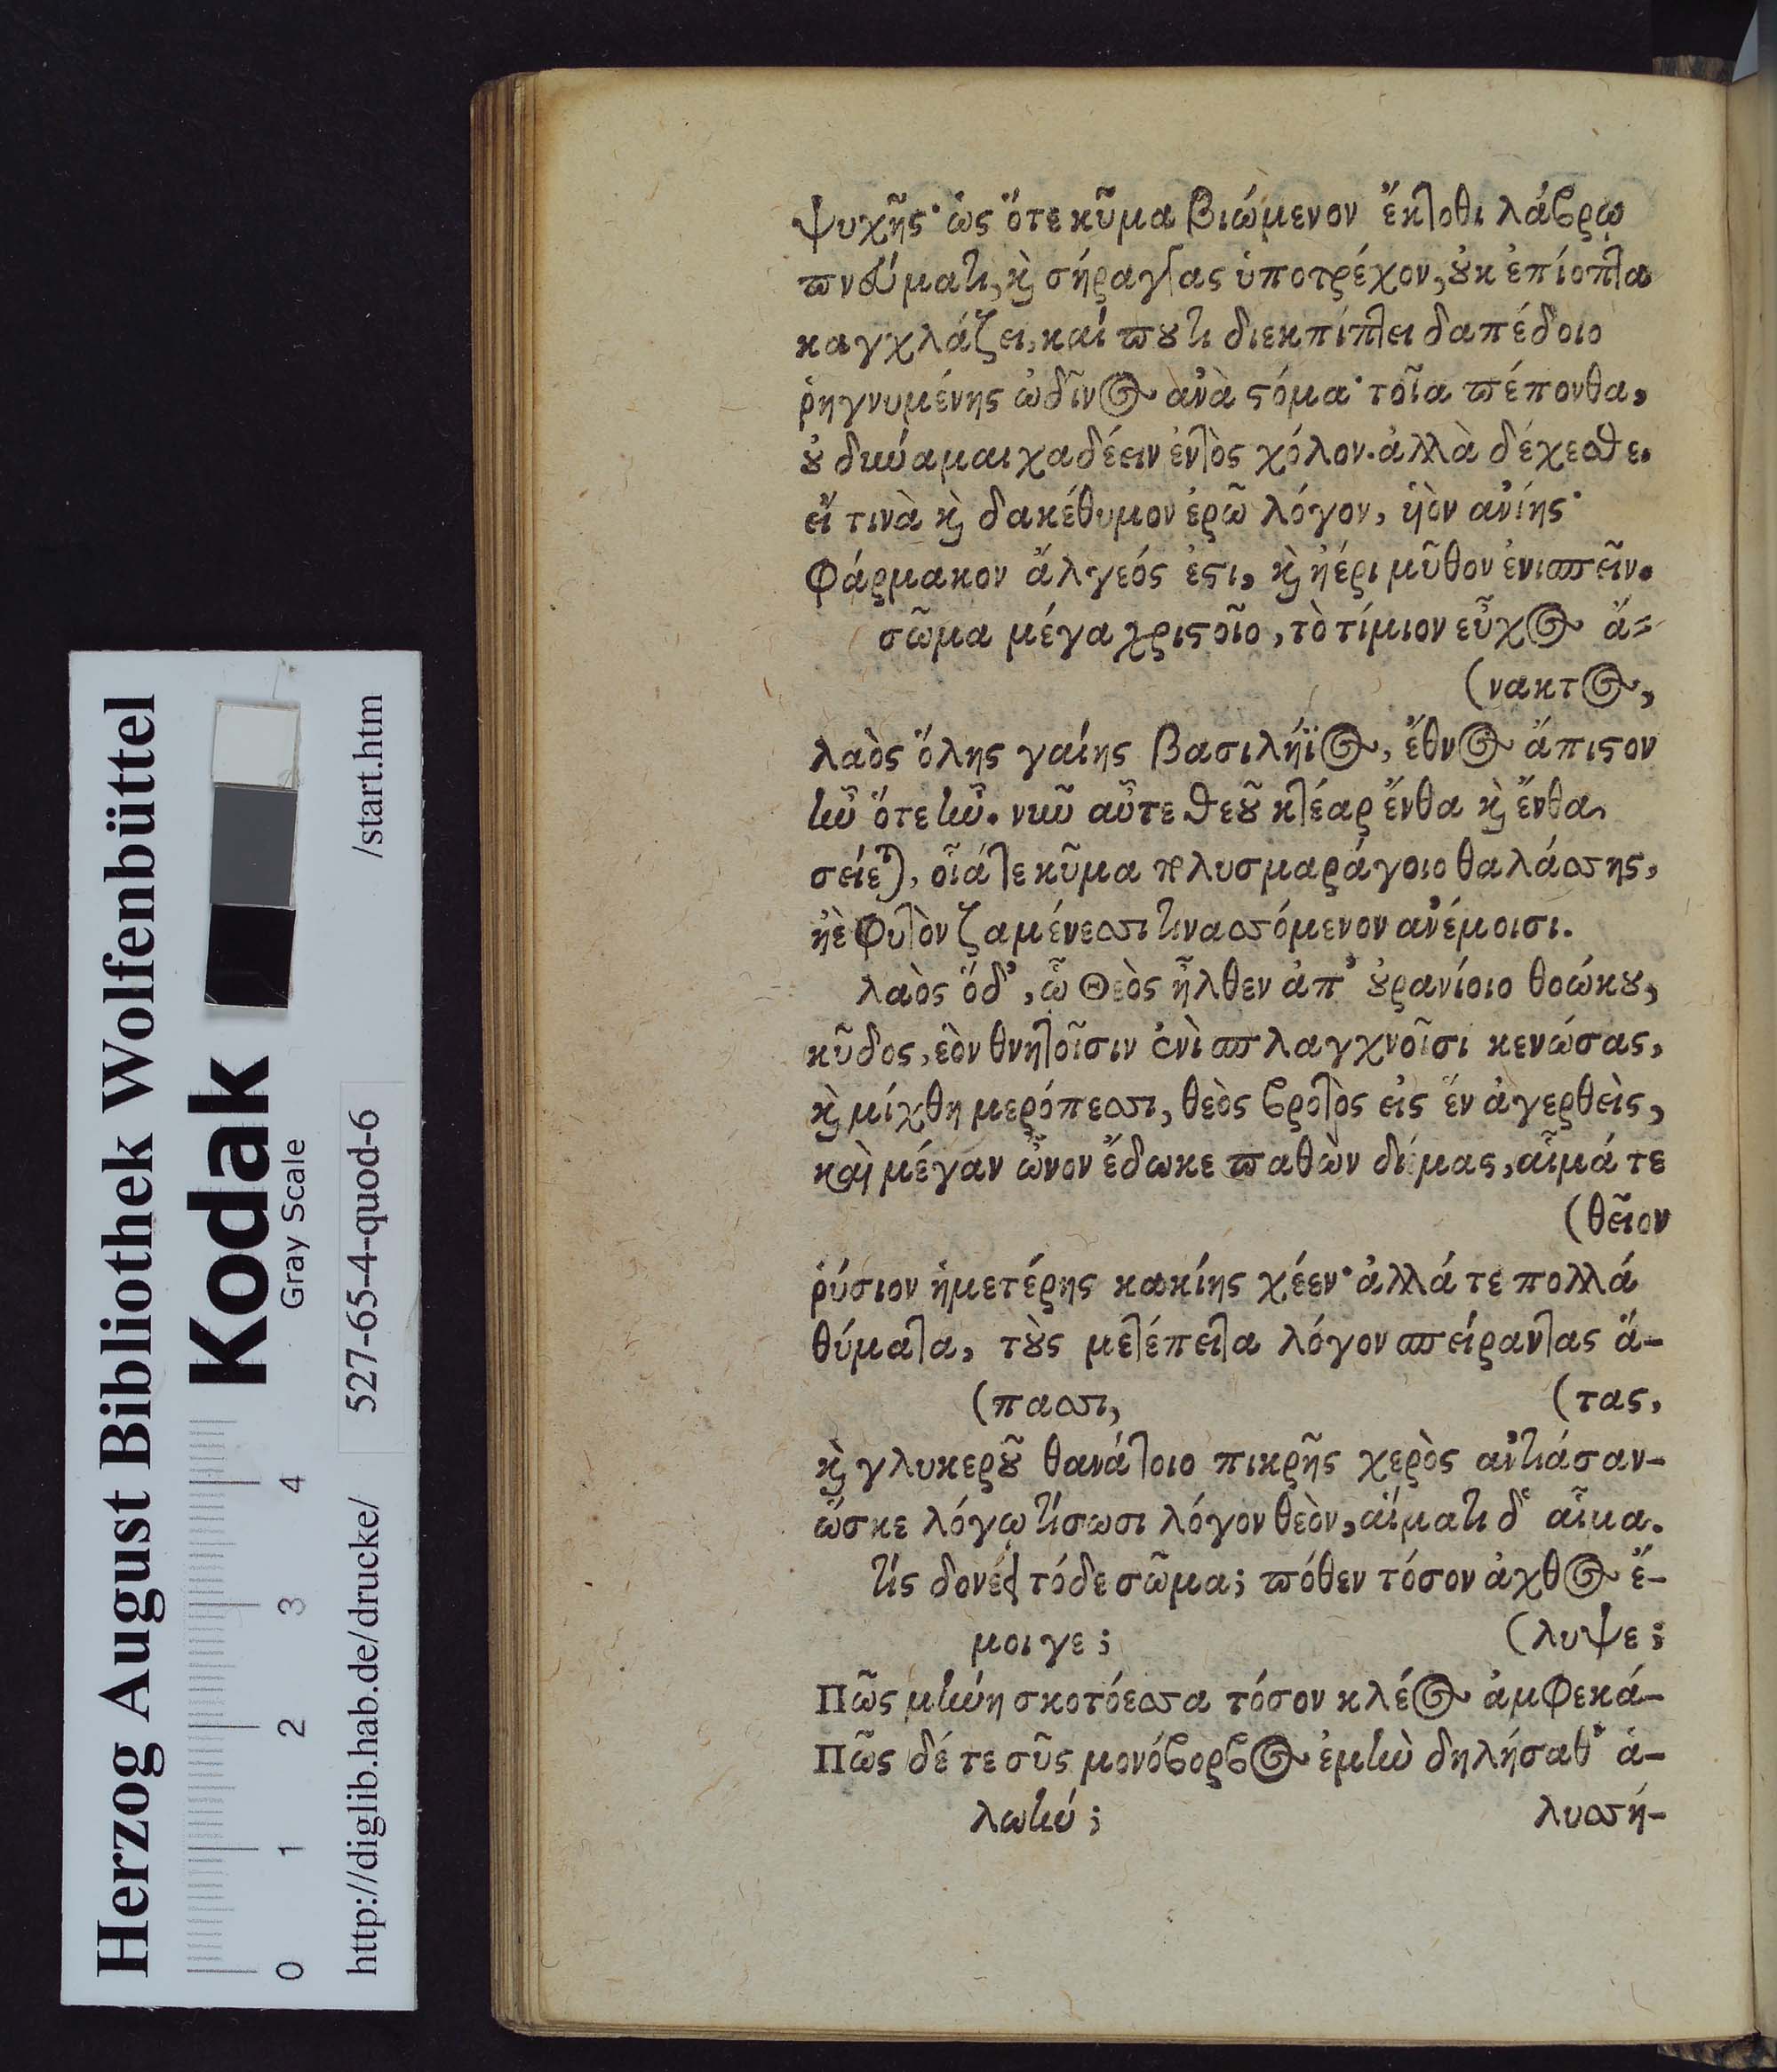 ψυχῆς· ὡς ὅτε κῦμα βιώμενον ἔκτοθι λάβρῳ
πνεύματι, καὶ σήραγγας ὑποτρέχον, οὐκ ἐπίοπτα
καγχλάζει, καί πουτι διεκπίπτει δαπέδοιο
ῥηγνυμένης ὠδῖνος ἀνὰ στόμα· τοῖα πέπονθα,
οὐ δύναμαι χαδέειν ἐντὸς χόλον. ἀλλὰ δέχεσθε.
εἴ τινὰ καὶ δακέθυμον ἐρῶ λόγον, υἱὸν ἀνίης·
φάρμακον ἄλγεός ἐστι, καὶ ἠέρι μῦθον ἐνισπεῖν.
σῶμα μέγα χριστοῖο, τὸ τίμιον εὖχος ἄ-
(νακτος,
λαὸς ὅλης γαίης βασιλήϊος, ἔθνος ἄπιστον
ἦν ὅτε ἦν. νῦν αὖτε θεοῦ κτέαρ ἔνθα καὶ ἔνθα
σείεται, οἷά τε κῦμα πολυσμαράγοιο θαλάσσης,
ἠὲ φυτὸν ζαμένεσσι τινασσόμενον ἀνέμοισι.
λαὸς ὅδ’, ᾧ Θεὸς ἦλθεν ἀπ’ οὐρανίοιο θοώκου,
κῦδος, ἑὸν θνητοῖσιν ἐνὶ σπλαγχνοῖσι κενώσας,
καὶ μίχθη μερόπεσσι, θεὸς βροτὸς εἰς ἓν ἀγερθεὶς,
καὶ μέγαν ὦνον ἔδωκε παθὼν δέμας, αἷμά τε
(θεῖον
ῥύσιον ἡμετέρης κακίης χέεν· ἀλλά τε πολλά
θύματα, τοὺς μετέπειτα λόγον σπείραντας ἅ-
(πασσι, (τας,
καὶ γλυκεροῦ θανάτοιο πικρῆς χερὸς ἀντιάσαν-
ὥσκε λόγῳ τίσωσι λόγον θεὸν, αἵματι δ’ αἷμα.
τίς δονέει τόδε σῶμα; πόθεν τόσον ἀχθος ἔ-
μοιγε; (λυψε;
Πῶς μήνη σκοτόεσσα τόσον κλέος ἀμφεκά-
Πῶς δέ τε σῦς μονόβορβος ἐμὴν δηλήσαθ’ ἀ-
λωήν; λυσσή-
Herzog August Bibliothek Wolfenbüttel
Kodak
Gray Scale
0 1 2 3 4
http://diglib.hab.de/drucke/ 527-65-4-quod-6 /start.htm